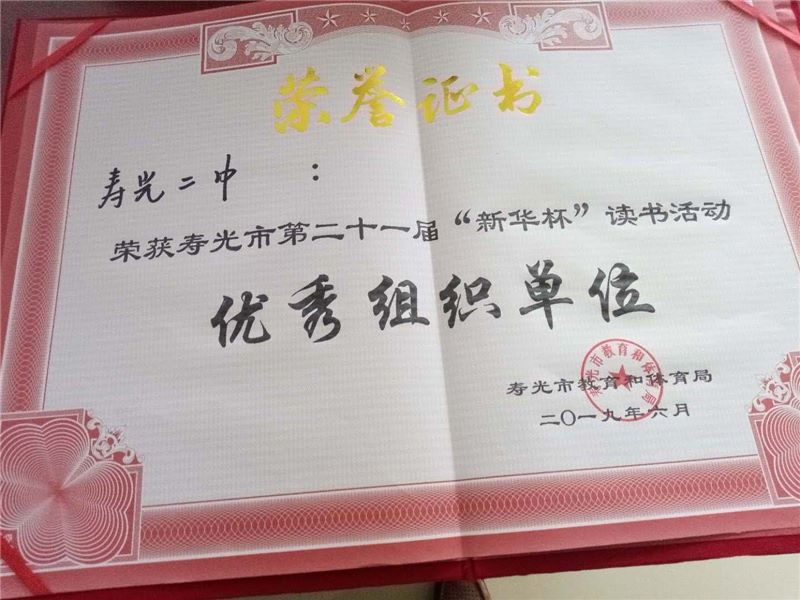 荣誉证书
寿光二中 ：
荣获寿光市第二十一届“新华杯”读书活动
优秀组织单位
寿光市教育和体育局
寿光市教育和体育局
二〇一九年六月